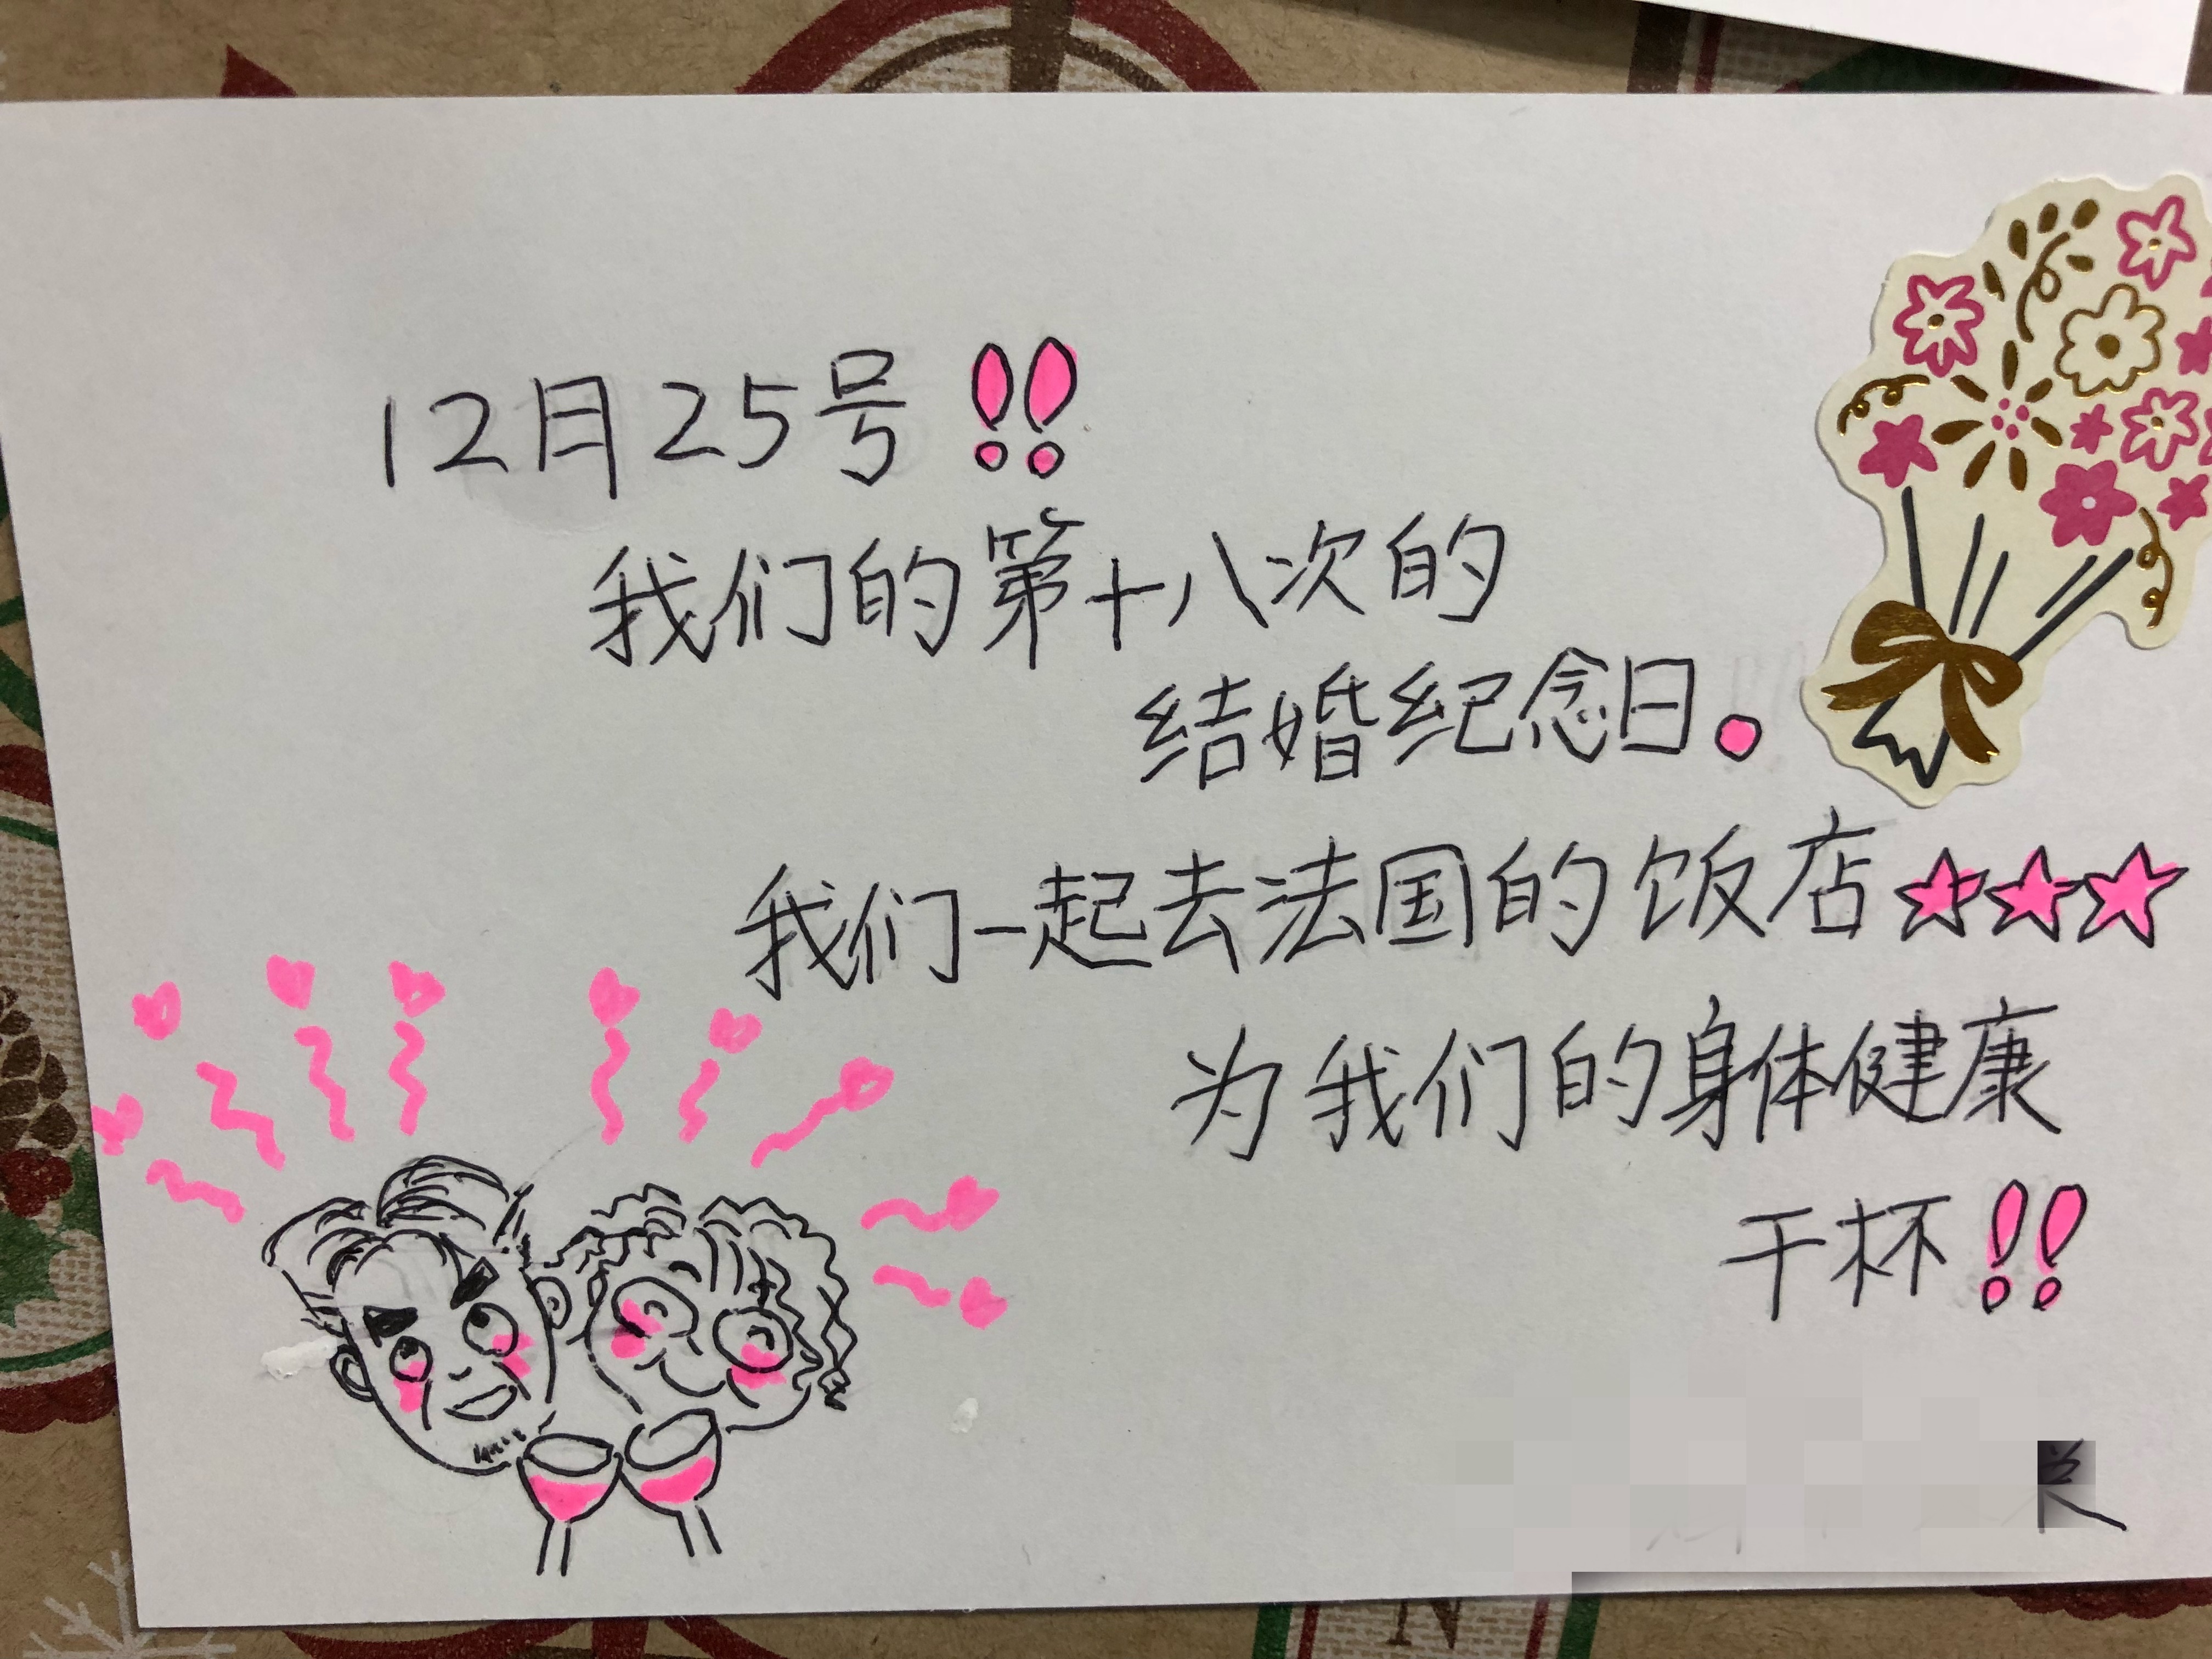 12月25号!!
我们的第十八次的
结婚纪念日。
我们一起去法国的饭店☆☆☆
为我们的身体健康
干杯!!
N